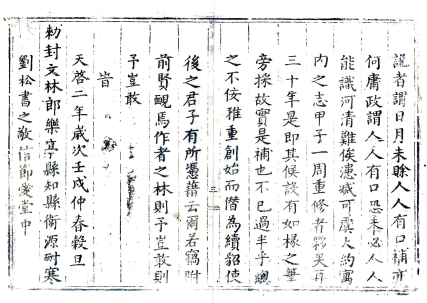 說者謂日月未賒人人有口補亦
何庸政謂人人有口恐未必人人
能識河清難俟患或可虞大約寓
內之志甲子一周重修者夥矣再
三十年是即其候設有如椽之筆
旁採故實是補也不已過半乎總
之不佞稚重創始而僭為續貂使
後之君子有所憑藉云爾若竊附
前賢覗馬作者之林則予豈敢則
予豈敢
旹
天啓二年歲次壬戌仲春穀旦
勑封文林郎樂亭縣知縣衛源耐寒
劉松書之敬信節愛堂中
三